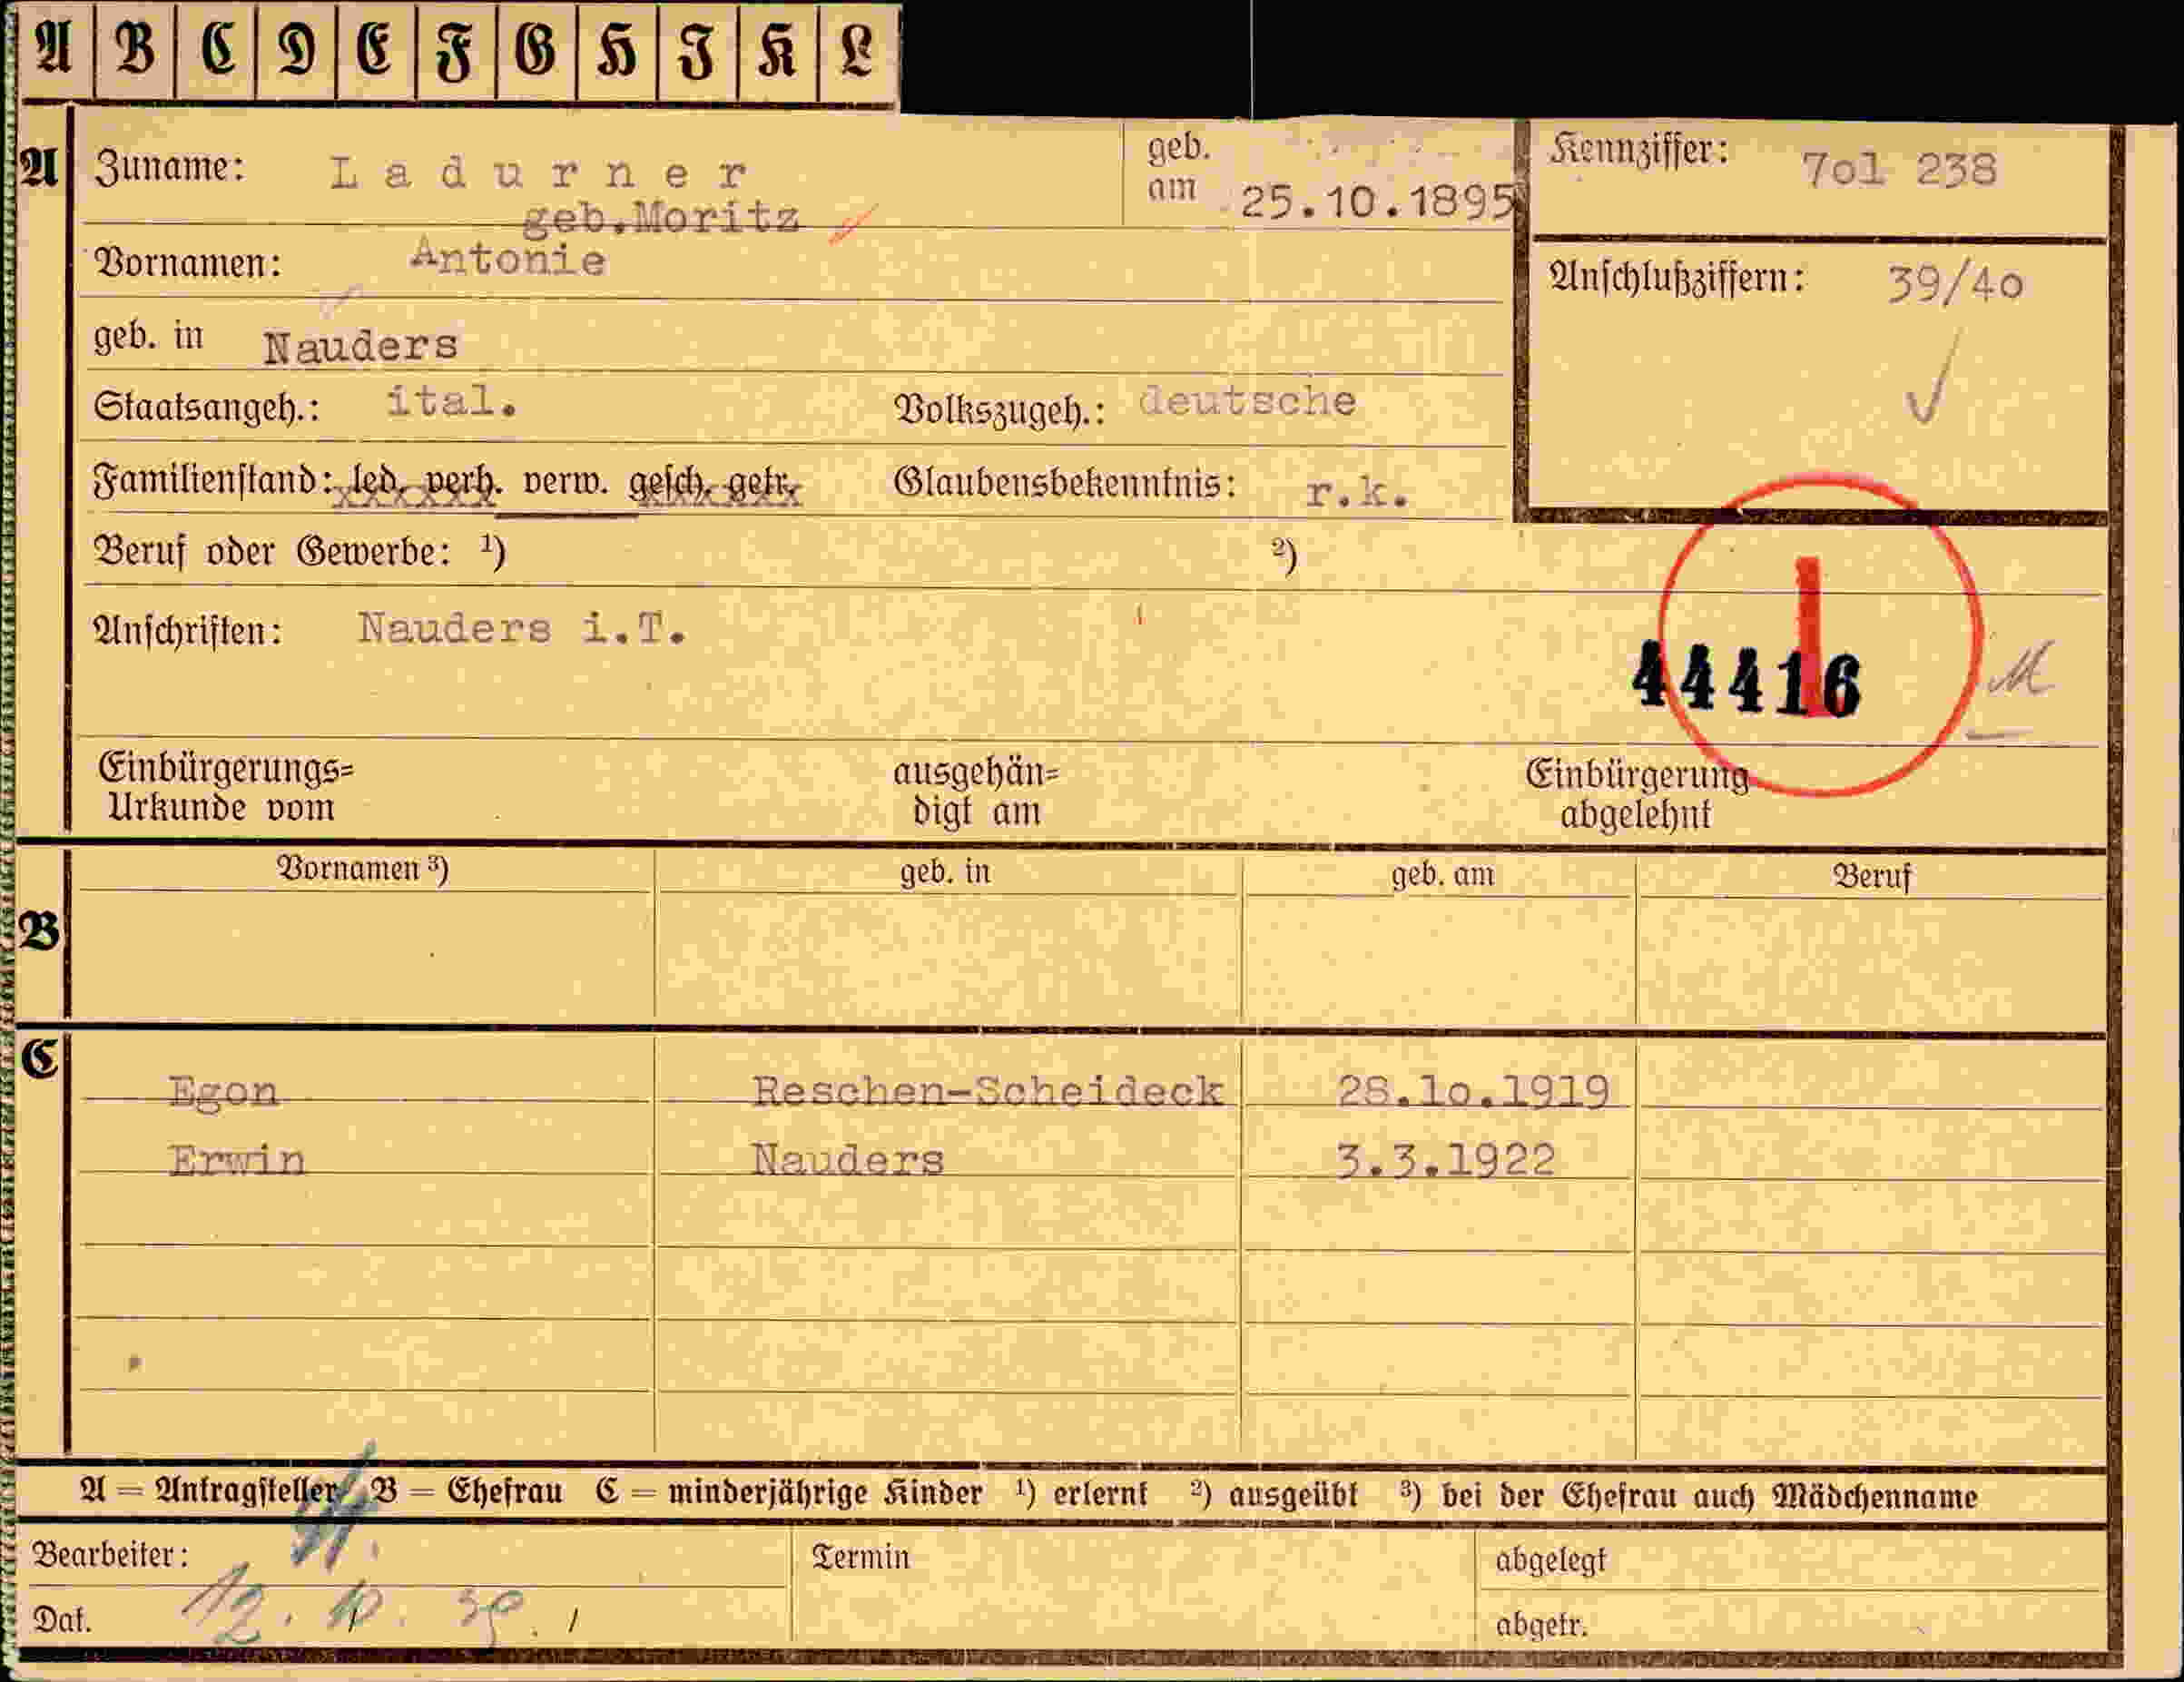 A B C D E F G H I K L
A Zuname: Ladurner geb. am 25.10.1895 Kennziffer: 7o1 238
geb.Moritz
Vornamen: Antonie Anschlußziffern: 39/4o
geb. in Nauders
Staatsangeh.: ital. Volkszugeh.: deutsche
Familienstand: led. verh. verw. gesch. getr. Glaubensbekenntnis: r.k.
Beruf oder Gewerbe: ¹) ²)
Anschriften: Nauders i.T.
I
44416 M
Einbürgerungs= ausgehän= Einbürgerung
Urkunde vom digt am abgelehnt
Vornamen ³) geb. in geb. am Beruf
B
C
Egon Reschen-Scheideck 28.1o.1919
Erwin Nauders 3.3.1922
A = Antragsteller B = Ehefrau C = minderjährige Kinder ¹) erlernt ²) ausgeübt ³) bei der Ehefrau auch Mädchenname
Bearbeiter: Termin abgelegt
Dat. 12. 10. 39. abgetr.